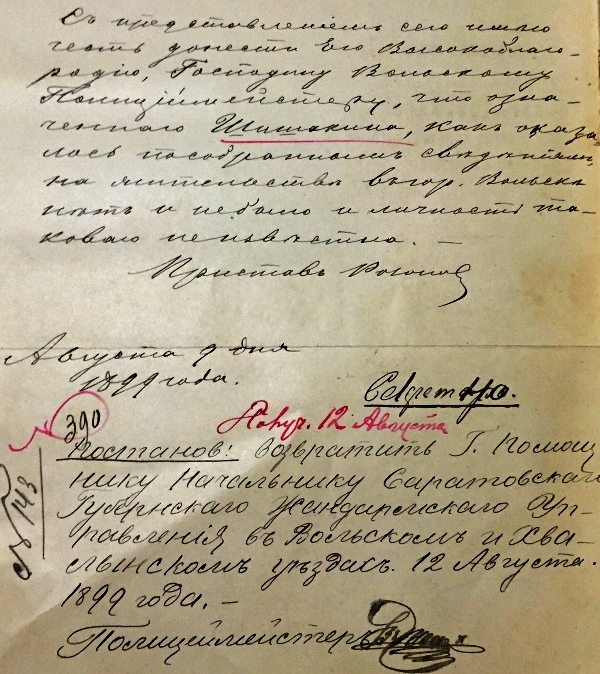 Съ представленіемъ сего имѣю
честь донести Его Высокоблаго-
родію, Господину Вольскому
Полиціймейстеру, что озна-
ченнаго Шишакина, какъ оказа
лось по собраннымъ свѣдѣніямъ,
на жительствѣ въ гор. Вольскѣ
нѣтъ и небыло и личность та-
коваго неизвѣстна. —
Приставъ
Августа 9 дня
1899 года.
Секретно.
Получ. 12 Августа
390
Постанов: возвратить Г. Помощ
нику Начальнику Саратовскаго
Губернскаго Жандармскаго Уп-
равленія въ Вольскомъ и Хва-
лынскомъ уѣздахъ. 12 Августа.
1899 года. —
Полицеймейстеръ
№ 143